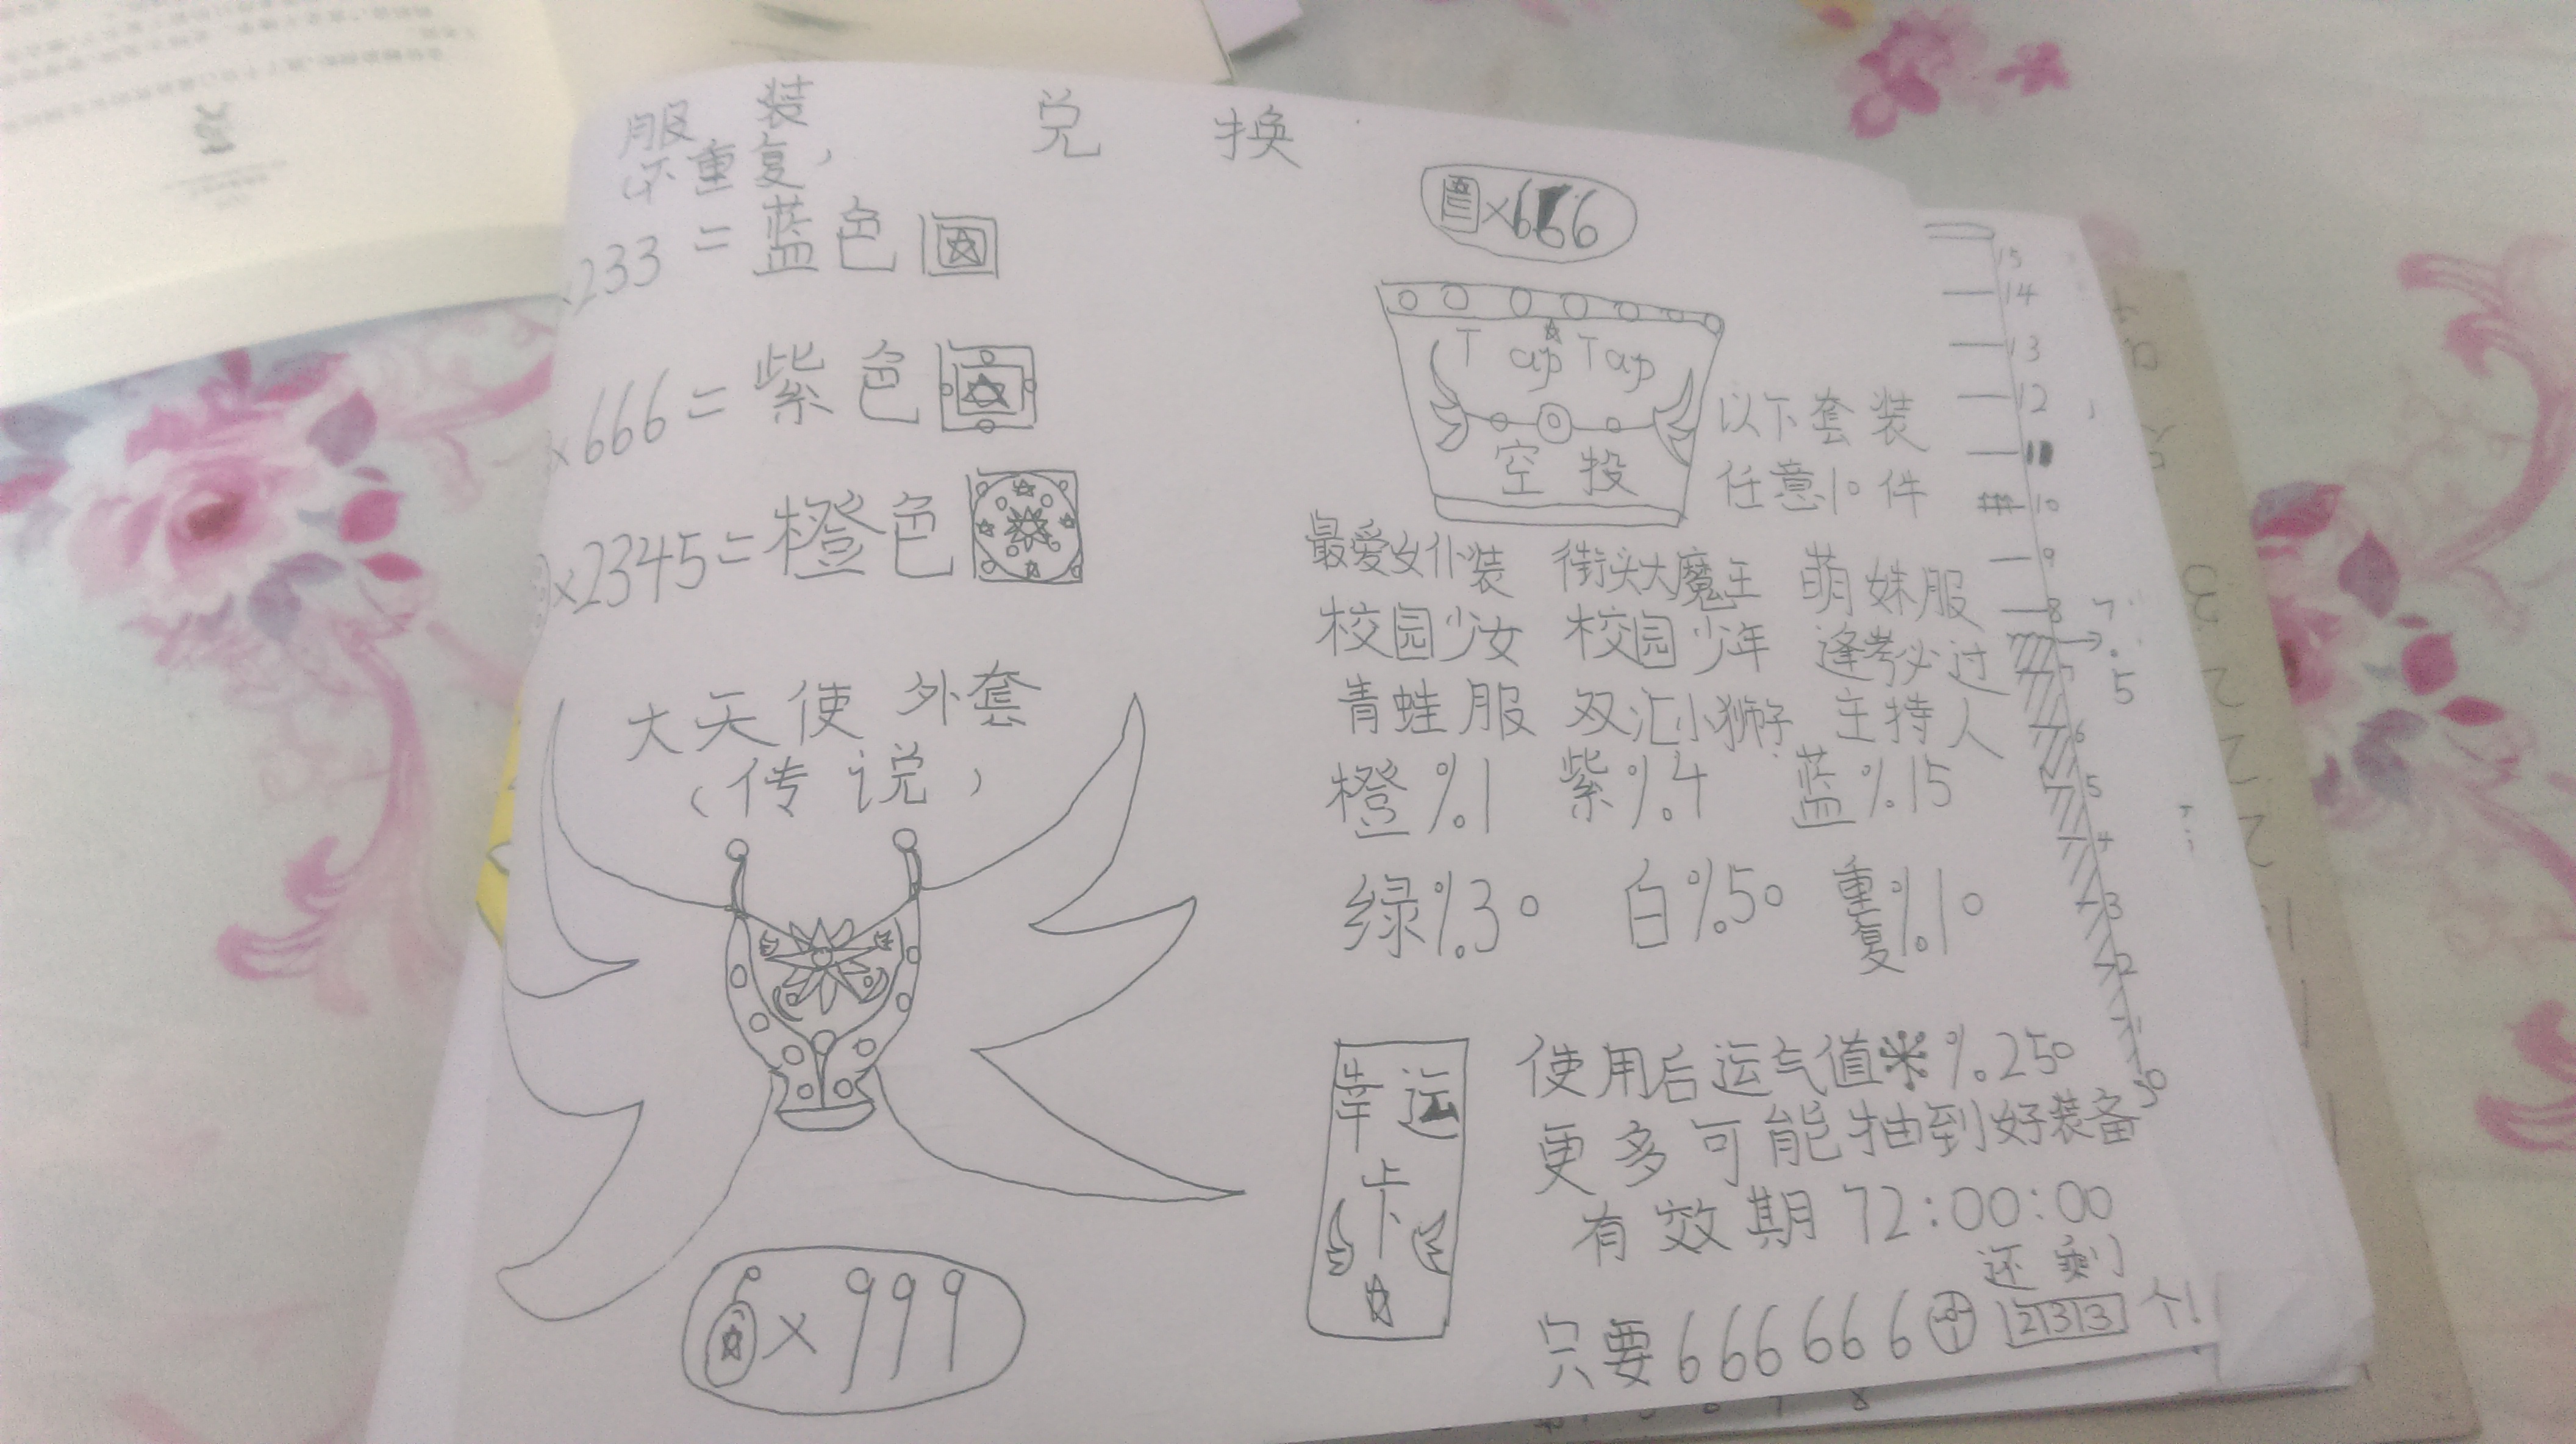 服装 兑换
(不重复)
x233=蓝色
x666=紫色
x2345=橙色
大天使外套
(传说)
x999
x666
Tap Tap
空投
以下套装
任意10件
最爱女仆装 街头大魔王 萌妹服
校园少女 校园少年 逢考必过
青蛙服 双汇小狮子 主持人
橙%1 紫%4 蓝%15
绿%30 白%50 重复%10
幸运
卡
使用后运气值※%250
更多可能抽到好装备
有效期72:00:00
还剩
只要666666 233个!
15
14
13
12
11
10
9
8
7.5
6
5
4
3
2
1
0